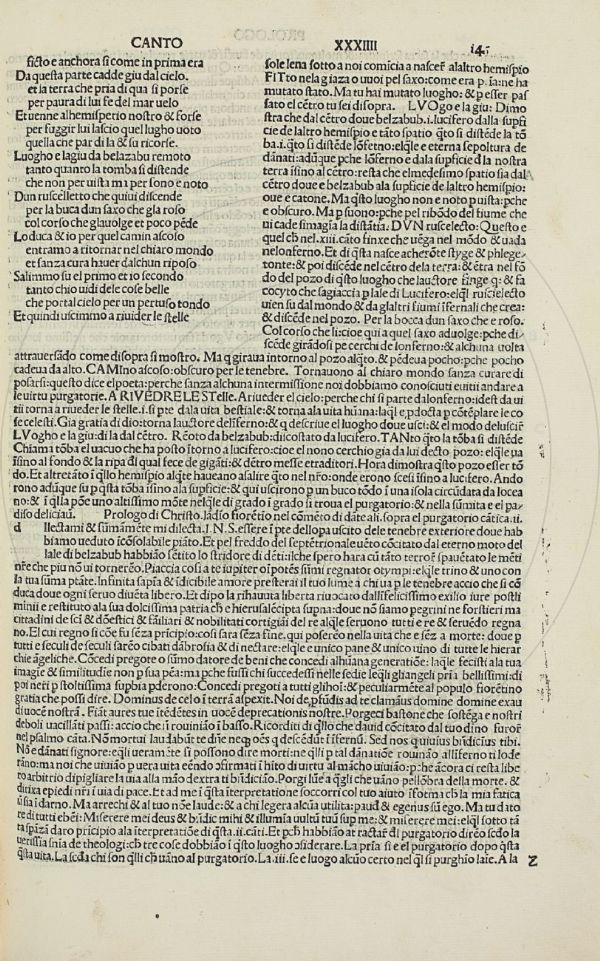 CANTO XXXIIII 14.
ficto e anchora si come in prima era
Da questa parte cadde giu dal cielo.
et la terra che pria di qua si porse
per paura di lui fe del mar uelo
Et uenne al hemisperio nostro & forse
per fuggir lui lascio quel lugho uoto
quella che par di la & su ricorse.
Luogho e lagiu da belzabu remoto
tanto quanto la tomba si distende
che non per uista ma per sono e noto
Dun ruscelletto che quiui discende
per la buca dun saxo che gla roso
col corso che glauolge et poco pēde
Lo duca & io per quel camin ascoso
entramo a ritornar nel chiaro mondo
et sanza cura hauer dalchun riposo
Salimmo su el primo et io secondo
tanto chio uidi de le cose belle
che portal cielo per un pertuso tondo
Et quindi uscimmo a riuider le stelle
sole lena sotto a noi comicia a nascer alaltro hemispio
FITto nela giaza o uuoi pel saxo: come era p.ia: ne ha
mutato stato. Ma tu hai mutato luogho: & p esser pas
sato el cētro tu sei disopra. LVOgo e la giu: Dimo
stra che dal cētro doue belzabub .i. lucifero dalla supfi
cie de laltro hemispio e tāto spatio q̄to si distēde la tō
ba .i. q̄to si distēde lōfetno: elqle e eterna sepoltura de
dānati: adūque pche lōferno e dala supficie dla nostra
terra isino al cētro: resta che elmedesimo spatio sia dal
cētro doue e belzabub ala supficie de laltro hemispio:
oue e catone. Ma q̄sto luogho non e noto p uista: pche
e obscuro. Ma p suono: pche pel ribōdo del fiume che
ui cade simagia la distātia. DVN ruscelecto: Questo e
quel ch nel .xiii. cāto finxe che uēga nel mōdo & uada
nelonferno. Et di q̄sta nasce acherōte styge & phlege
tonte: & poi discēde nel cētro dela terra: & etra nel fō
do del pozo di q̄sto luogho che lauctore finge q: & fa
cocyto che sagiaccia p lale di Lucifero: elql ruscielecto
uien su dal mondo & da glaltri fiumi ifernali che crea:
& discēde nel pozo. Per la bocca dun saxo che e roso.
Col corso che li: cioe qui a quel saxo aduolge: pche di
scēde girādosi pe cerchi de lonferno: & alchuna uolta
attrauersādo come disopra si mostro. Ma q giraua intorno al pozo alq̄to. & pēdeua pocho: pche pocho
cadeua da alto. CAMIno ascoso: obscuro per le tenebre. Tornauono al chiaro mondo sanza curare di
posarsi: questo dice el poeta: perche sanza alchuna intermissione noi dobbiamo conosciuti euitii andare a
le uirtu purgatorie. A RIVEDRE LE STelle. A riueder el cielo: perche chi si parte dalonferno: idest da ui
tii torna a riueder le stelle. i. si pte dala uita bestiale: & torna ala uita hūana: laql e, p docta p cōtēplare le co
se celesti. Gia gratia di dio: torna lauctore delīferno: & q descriue el luogho doue usci: & el modo delusciř
LVogho e la giu: di la dal cētro. Rēoto da belzabub: discostato da lucifero. TANto q̄to la tōba si distēde
Chiama tōba el uacuo che ha posto ītorno a lucifero: cioe el nono cerchio gia da lui decto pozo: elqle ua
isino al fondo & la ripa dl qual fece de gigāti: & dētro messe etraditori. Hora dimostra q̄sto pozo esser tō
do. Et altretāto ī qllo hemispio alq̄te haueano a salire q̄to nel nr̄o: onde erono scesi isino a lucifero. Ando
rono adūque su p q̄sta tōba isino ala supficie: & qui uscirono p un buco tōdo ī una isola circūdata da locea
no: & ī qlla pōe uno altissimo mōte nelqle di grado ī grado si troua el purgatorio: & nella sūmita e el pa/
diso deliciaū. Prologo di Christo. lādsio fiorētio nel cōmēto di dāte ali. sopra el purgatorio cātica. ii.
d llectami & sūmamēte mi dilecta .I.N.S. essere ī pte dellopa uscito dele tenebre exteriore doue hab
biamo ueduto icōsolabile piāto. Et pel freddo del septētrionale uēto cōcitato dal eterno moto del
lale di belzabub habbiāo sētito lo stridore di dēti: ilche spero hara cū tāto terror spauētato le mēti
nr̄e che piu nō ui torneréo. Piaccia cosi a te iupiter oīpotēs sūmi regnator olympi: elqle trino & uno con
la tua sūma ptāte. Infinita sapīa & idicibile amore presterai il tuo lume a chi ua p le tenebre accio che si cō
duca doue ogni seruo diuēta libero. Et dipo la rihauuta liberta riuocato dallīfelicissimo exilio iure postli
minii e restituto ala sua dolcissima patria ch e hierusalē cipta supna: doue nō siamo pegrini ne forstieri ma
cittadini de sci & dōestici & fāiliari & nobilitati cortigiāi del re alqle seruono tutti e re & seruēdo regna
no. El cui regno si cōe fu sēza pricipio: cosi sara sēza fine. qui poserēo nella uita che e sēz a morte: doue p
tutti e seculi de seculi sarēo cibati dābrosia & di nectare: elqle e unico pane & unico uino di tutte le hierar
chie āgeliche. Cōcedi pregote o sūmo datore de beni che concedi alhūana generatiōe: laqle fecisti ala tua
imagie & similitudie non p sua pēa: ma pche fussi chi succedessi nelle sedie leqli gliangeli pria bellissimi: di
poi neri p stoltissima supbia pderono: Concedi pregoti a tutti glihoī: & peculiarmēte al populo fiorētino
gratia che possi dire. Dominus de celo ī terrā aspexit. Noi de, pfūdis ad te clamāus domine domine exau
di uocē nostrā. Fiāt aures tue itēdētes in uocē deprecationis nostre. Porgeci bastone che sostēga e nostri
deboli uacillāti passi: accio che ī rouiniāo ī basso. Ricorditi di qllo che dauid cōcitato dal tuo diuo furor
nel psalmo cāta. Nō mortui laudabūt te dn̄e neqȝ oēs q descēdūt ī īfernū. Sed nos q uiuius bn̄dicius tibi.
Nō e dānati signore: eqli ueramēte si possono dire morti: ne qlli p tal dānatiōe rouināo allīferno ti lode
rāno: ma noi che uiuiāo p uera uita eēndo ofirmati ī hito di uirtu al mācho uiuiāo: pche ācora ci resta libe
ro arbitrio dipigliare la uia alla mão dextra ti bn̄dicião. Porgi lūe a qgli che uāno pellōbra della morte. &
diriza epiedi nr̄i ī uia di pace. Et ad me ī q̄sta īterpretatione soccorri col tuo aiuto ifoma ch la mia fatica
nō sia īdarno. Ma arrechi & al tuo nōe laude: & a chi legera alcūa utilita: paup & egenus sū ego. Ma tu dato
re di tutti ebēi: Miserere mei deus & bn̄dic mihi & illumīa uultū tuū sup me: & miserere mei: elql sotto tā
ta spāzā daro pricipio ala īterpretatiōe di q̄sta .ii. cāti. Et pch habbiāo at ractar dl purgatorio dirēo secōdo la
uerissia snīa de theologi: ch tre cose dobbiāo ī q̄sto luogho ɔsiderare. La prīa si e el purgatorio dopo q̄sta
q̄sta uita. La secōda chi son qlli ch uāno al purgatorio. La .iii. se e luogo alcūo certo nel ql si purghīo laīe. A la
Z